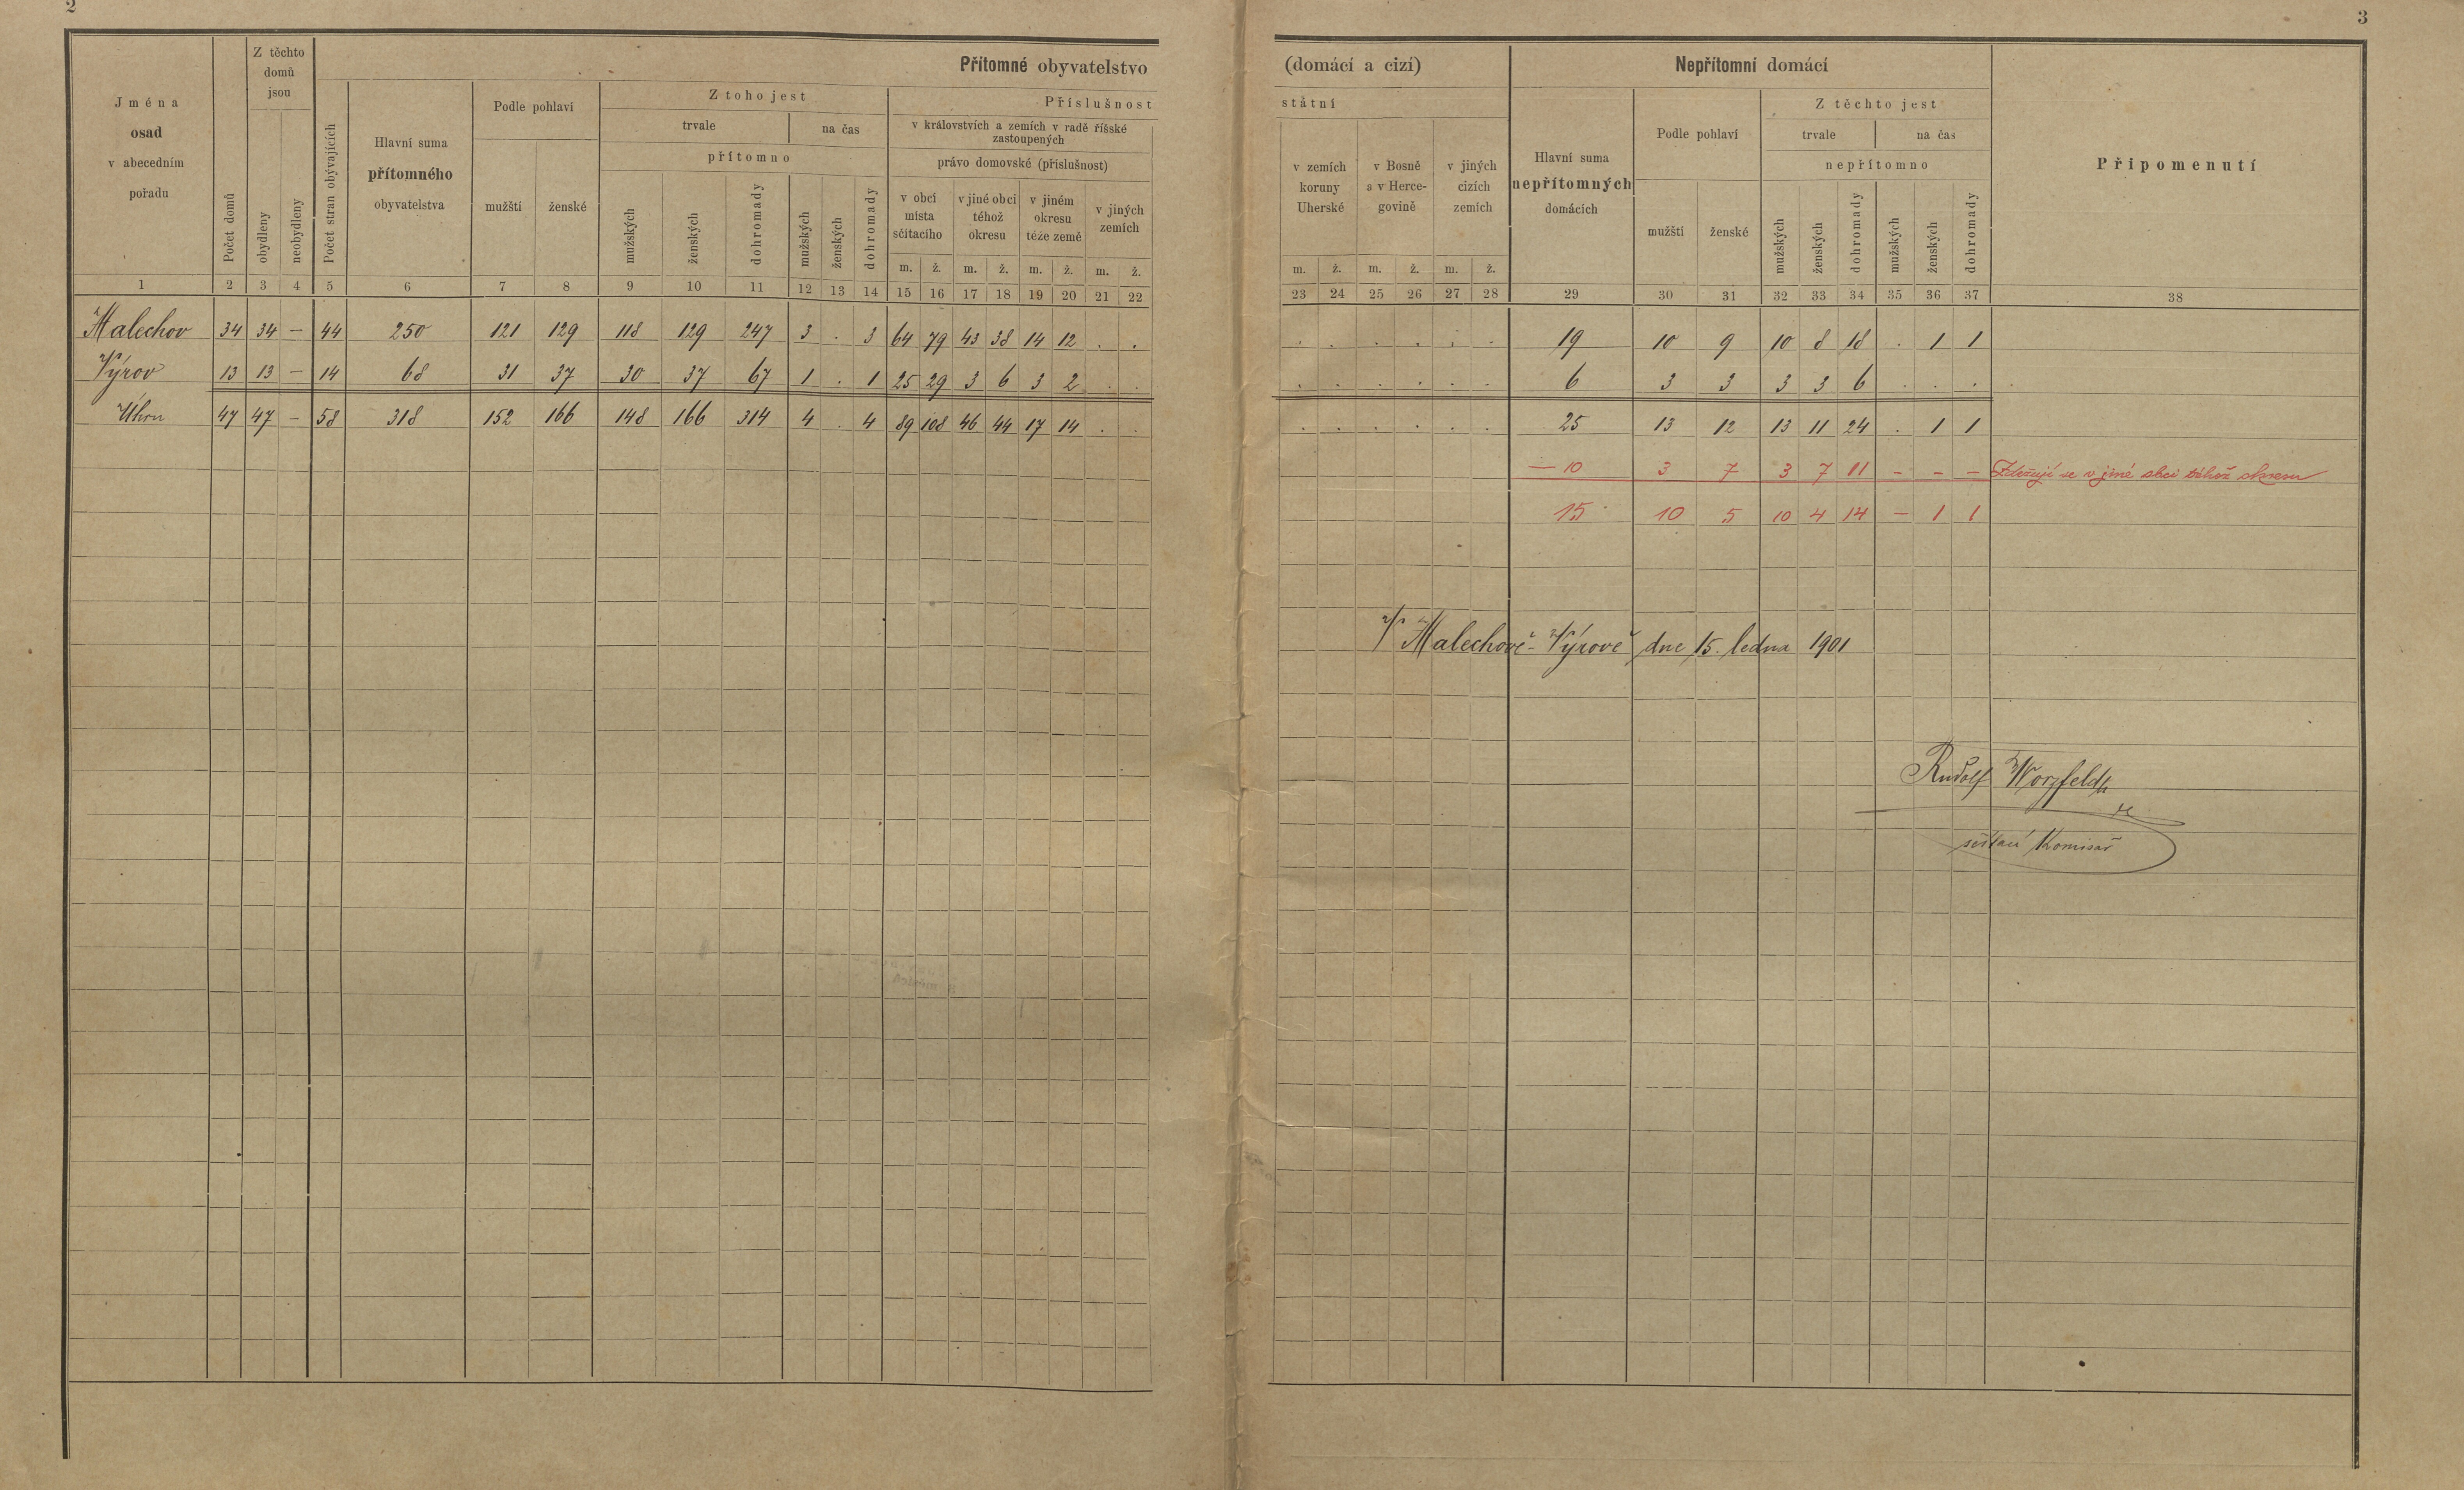 2
3
Přítomné obyvatelstvo
(domácí a cizí)
Nepřítomní domácí
Jména
osad
v abecedním
pořadu
Počet domů
Z těchto
domů
jsou
obydleny
neobydleny
Počet stran obývajících
Hlavní suma
přítomného
obyvatelstva
Podle pohlaví
mužští
ženské
Z toho jest
trvale
na čas
přítomno
mužských
ženských
dohromady
mužských
ženských
dohromady
Příslušnost
v královstvích a zemích v radě říšské
zastoupených
právo domovské (příslušnost)
v obci
místa
sčítacího
v jiné obci
téhož
okresu
v jiném
okresu
téže země
v jiných
zemích
m. ž. m. ž. m. ž. m. ž.
státní
v zemích
koruny
Uherské
v Bosně
a v Herce-
govině
v jiných
cizích
zemích
m. ž. m. ž. m. ž.
Hlavní suma
nepřítomných
domácích
Podle pohlaví
mužští
ženské
Z těchto jest
trvale
na čas
nepřítomno
mužských
ženských
dohromady
mužských
ženských
dohromady
Připomenutí
1 2 3 4 5 6 7 8 9 10 11 12 13 14 15 16 17 18 19 20 21 22
23 24 25 26 27 28 29 30 31 32 33 34 35 36 37 38
Malechov 34 34 — 44 250 121 129 118 129 247 3 . 3 64 79 43 38 14 12 . .
. . . . . . 19 10 9 10 8 18 . 1 1
Výrov 13 13 — 14 68 31 37 30 37 67 1 . 1 25 29 3 6 3 2 . .
. . . . . . 6 3 3 3 3 6 . . .
Úhrn 47 47 — 58 318 152 166 148 166 314 4 . 4 89 108 46 44 17 14 . .
. . . . . . 25 13 12 13 11 24 . 1 1
— 10 3 7 3 7 11 – – – Zdržují se v jiné obci téhož okresu
15 10 5 10 4 14 – 1 1
V Malechově - Výrově dne 15. ledna 1901
Rudolf
sčítací Komisař